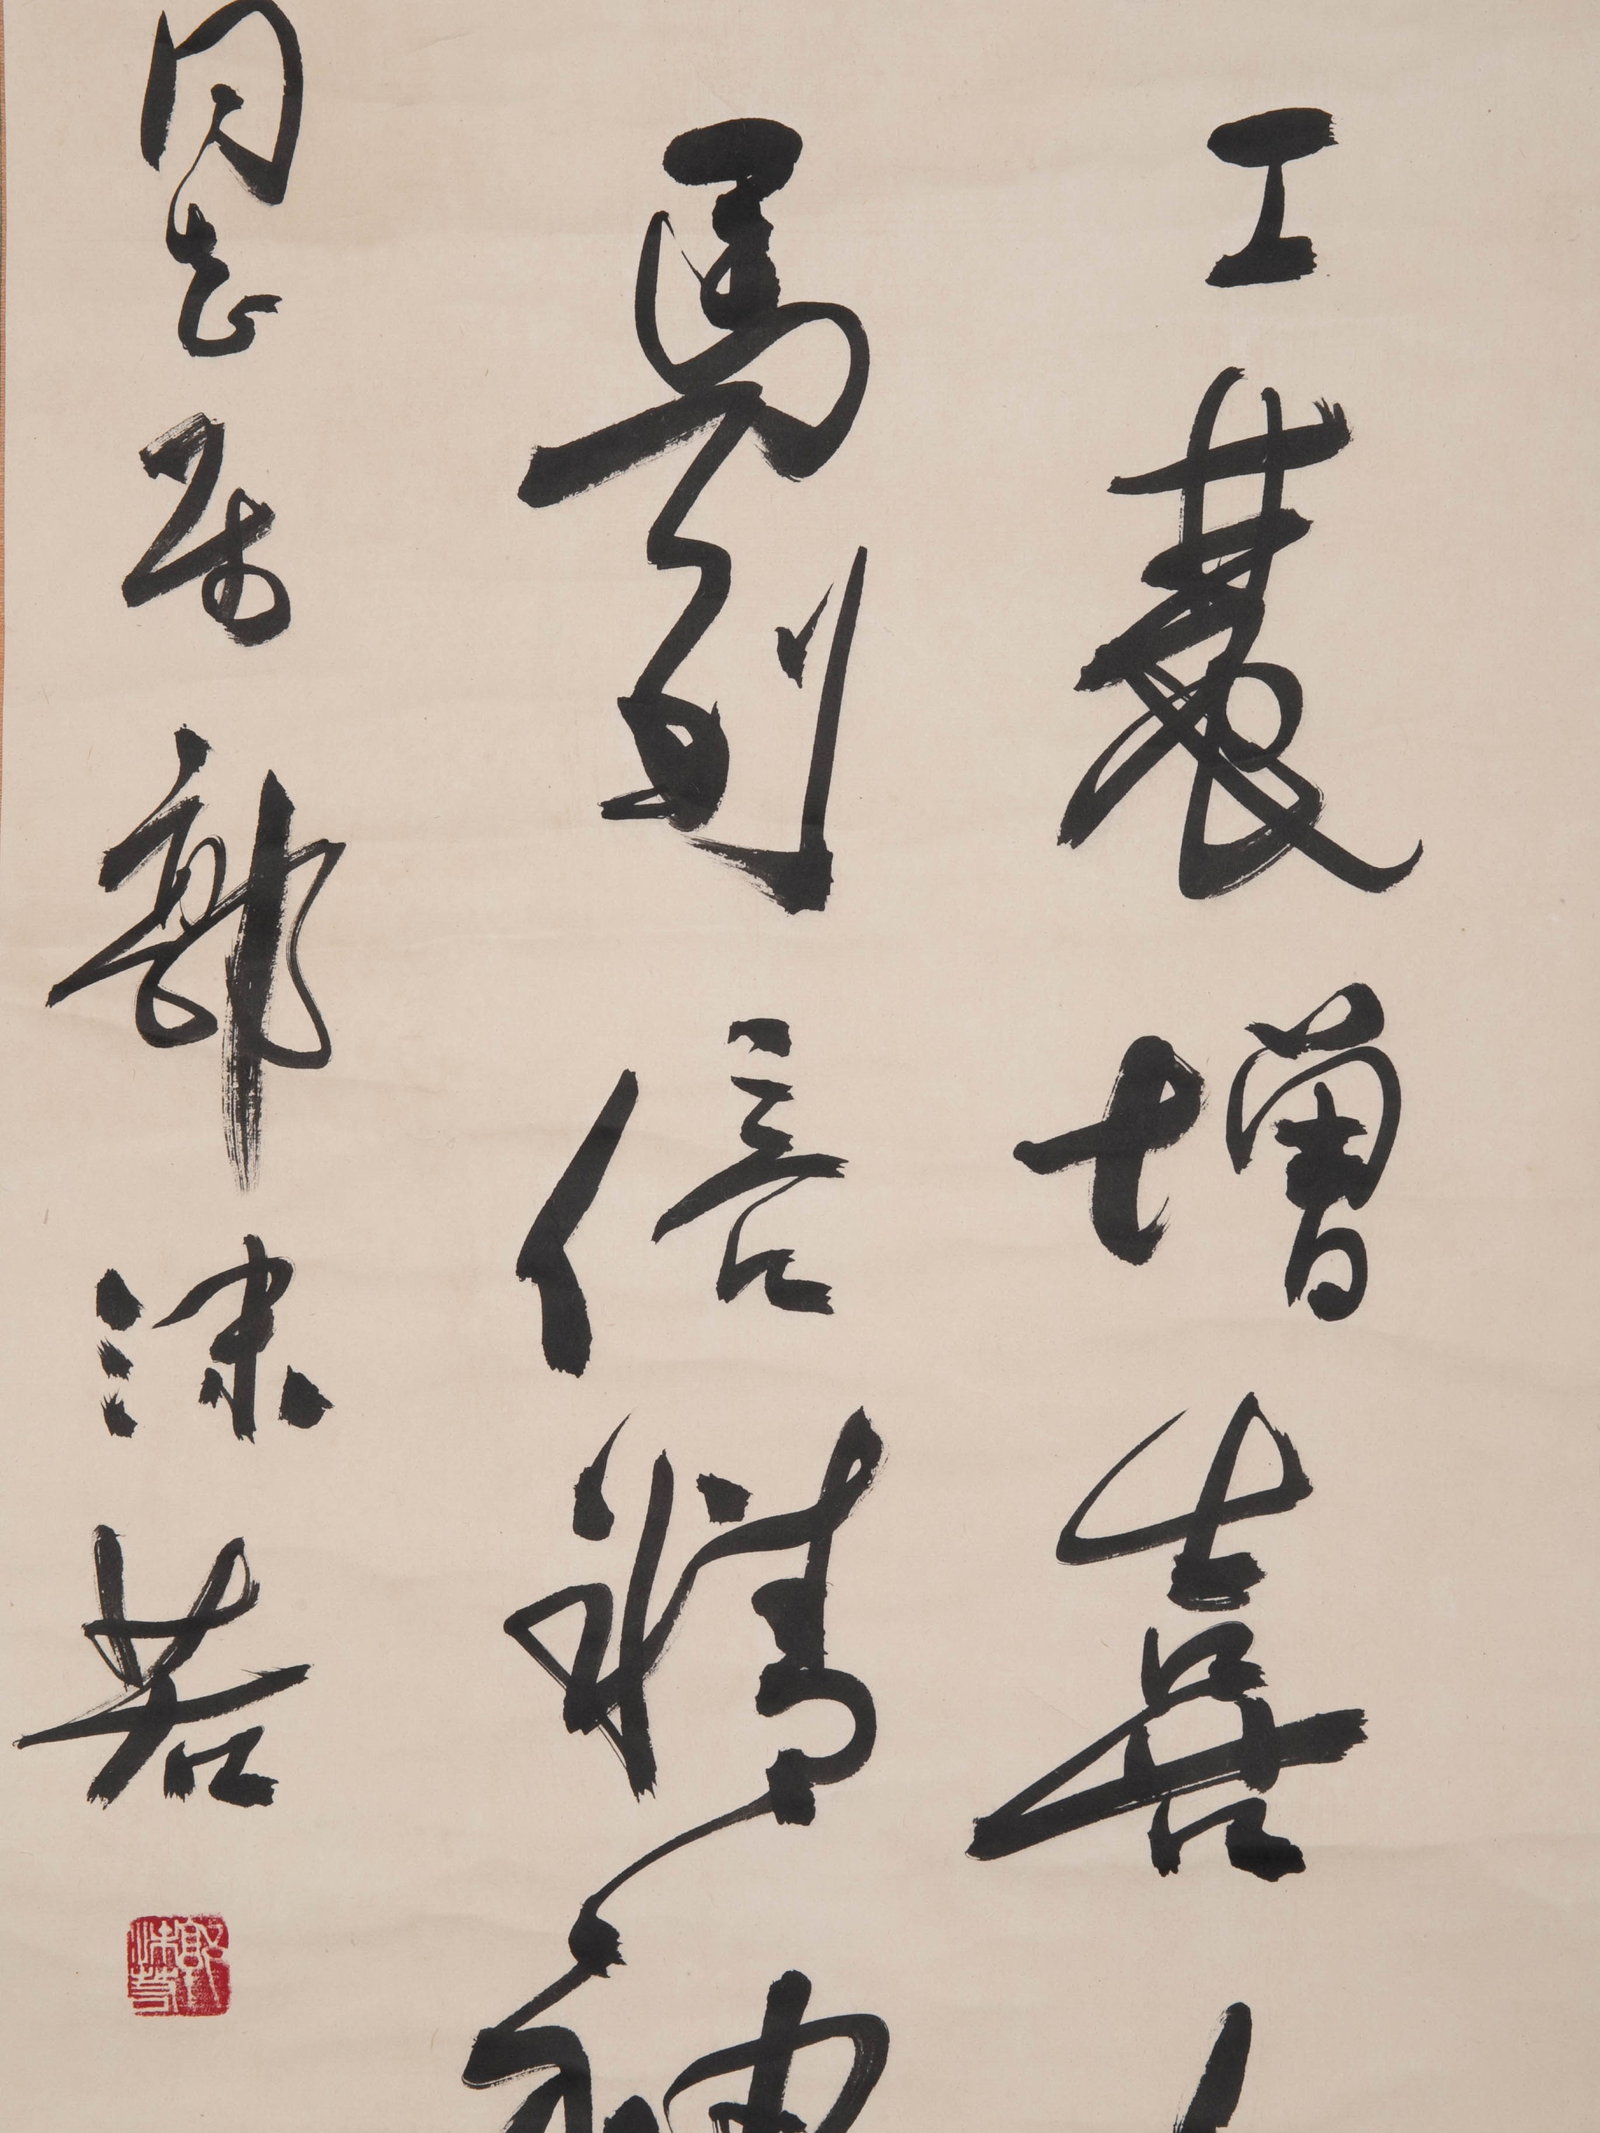 工農增喜
馬列信精神
同志属 郭沫若
郭沫若